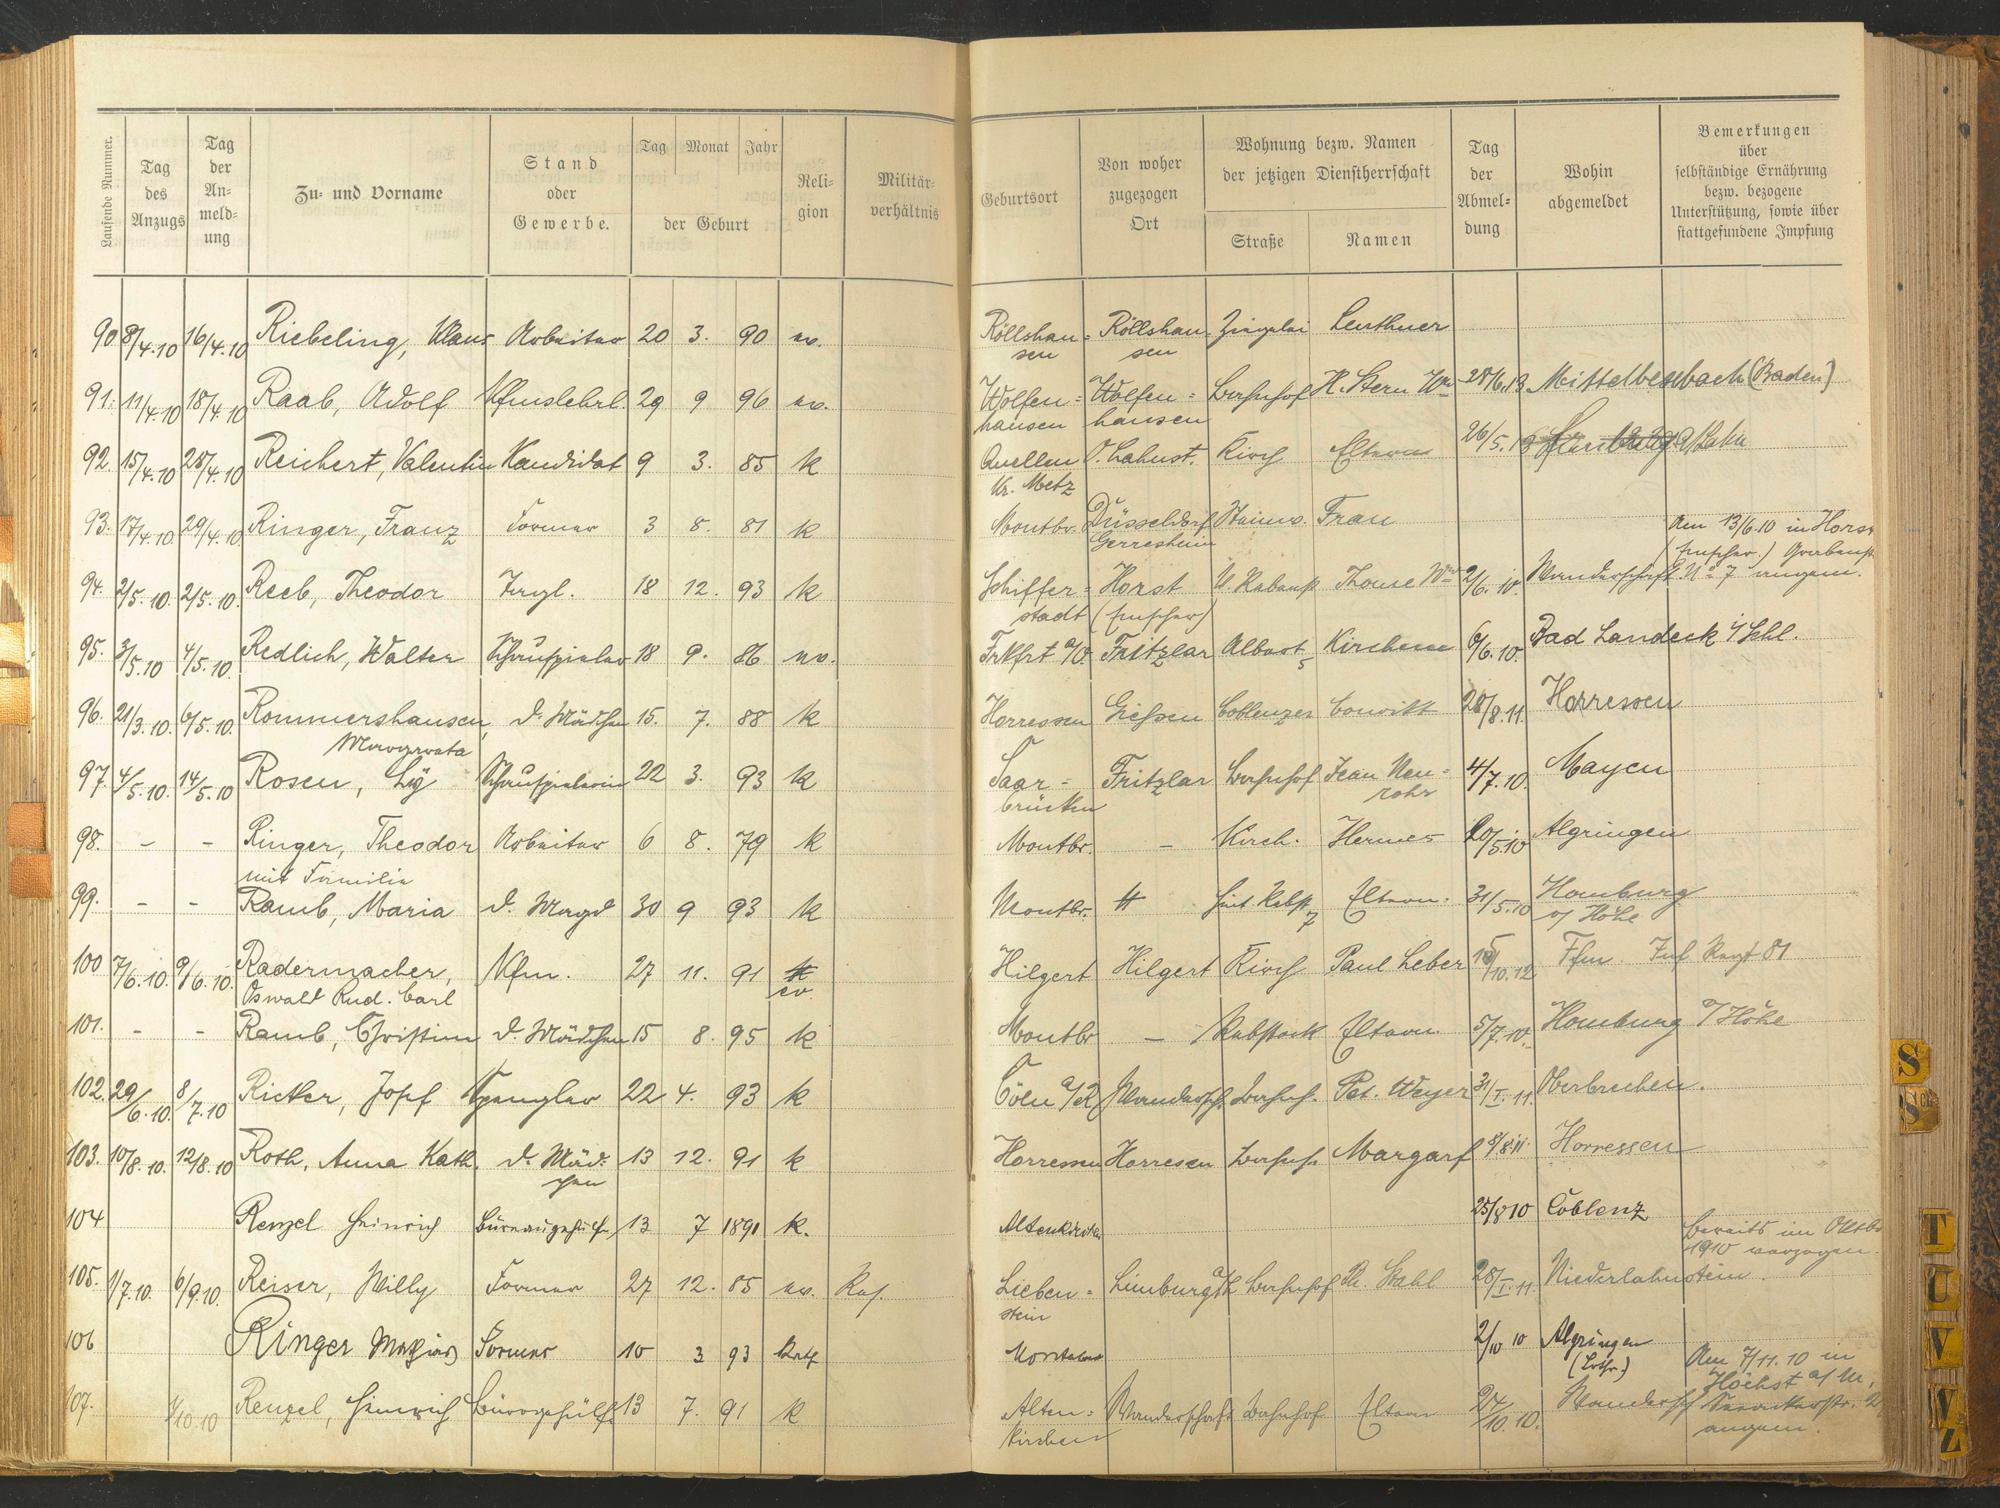 Laufende Nummer.
Tag des Anzugs
Tag der An- meld- ung
Zu- und Vorname
Stand oder Gewerbe.
Tag Monat Jahr
der Geburt
Reli- gion
Militär- verhältnis
Geburtsort
Von woher zugezogen Ort
Wohnung bezw. Namen der jetzigen Dienstherrschaft
Straße Namen
Tag der Abmel- dung
Wohin abgemeldet
Bemerkungen über selbständige Ernährung bezw. bezogene Unterstützung, sowie über stattgefundene Impfung
90 8/4.10 16/4.10 Riebeling, Arbeiter 20 3. 90 ev. Röllshau- Röllshau- Ziegelei Leuthner
sen sen
91. 11/4.10 18/4.10 Raab, Adolf Kfmslehrl. 29 9 96 ev. Wolfen= Wolfen= Bahnhof H. Stern Wwe 28/6.13 (Baden)
hausen hausen
92. 15/4.10 25/4.10 Reichert, Valentin Kandidat 9 3. 85 k O. Lahnst. Kirch Eltern 26/5.13 a/Lahn
Kr. Metz
93. 17/4.10 29/4.10 Ringer, Franz Former 3 8. 81 k Montbr. Düsseldorf Steinw. Frau
Gerresheim
Am 13/6.10 in Horst
(Emscher)
94. 2/5.10. 2/5.10. Reeb, Theodor 18 12. 93 k Schiffer- Horst Thome Wwe 2/6.10. Wanderschaft No 7 angem.
stadt (Emscher)
95. 3/5.10 4/5.10. Redlich, Walter Schauspieler 18 9. 86 ev. Frkfrt a/O. Fritzlar Albert 5 6/6.10. Bad Landeck i/Schl.
96. 21/3.10 6/5.10. Rommershausen, d. Mädchen 15. 7. 88 k Horressen Giessen Coblenzer 28/8.11. Horressen
Margareta
97. 4/5.10. 14/5.10 Rosen, Ly Schauspielerin 22 3. 93 k Saar= Fritzlar Bahnhof Jean Neu= 4/7.10. Mayen
brücken rohr
98. - - Ringer, Theodor Arbeiter 6 8. 79 k Montbr. - Kirch. Hermes 20/5.10 Algringen
mit Familie
99. - - Ramb, Maria d. Magd 30 9 93 k Montbr. Eltern. 31/5.10 Homburg
7 v/ Höhe
100 7/6.10. 9/6.10. Radermacher, Kfm. 27 11. 91 k Hilgert Hilgert Kirch Paul Leber 15/10.12 Ffm. Inf Regt 81
Oswald Rud. Carl ev.
101. - - Ramb, Christine d. Mädchen 15 8. 95 k Montbr - Rebstock Eltern 5/7.10. Homburg v/Höhe
102. 29/6.10. 8/7.10 Ricker, Josef Spengler 22 4. 93 k Cöln a/R Wandersch. Bahnh. Pet. Weyer 31/I.11. Oberbrechen.
103. 10/8.10. 12/8.10 Roth, Anna Kath. d. Mäd- 13 12. 91 k Horressen Horressen Bahnh. Margarf 8/8 11. Horressen
chen
104 Renzel Heinrich Büreaugehülfe 13 7 1891 k. Altenkirchen 25/8 10 Coblenz
bereits im Oktbr
1910 verzogen.
105. 1/7.10. 6/9.10. Reiser, Willy Former 27 12. 85 ev. Lieben= Limburg a/L Bahnhof Stahl 28/I.11. Niederlahnstein.
stein
106 Ringer Mathias Former 10 3 93 kath 2/10 10 Algringen
(Lothr.)
Am 7/11.10 in
Höchst a/M,
107. 1/10.10 Renzel, Heinrich Bürogehülfe 13 7. 91 k Alten= Wanderschaft Bahnhof Eltern 24/10.10. Wandersch 2
kirchen angem.
S
Sch
T
U
V
W
Z